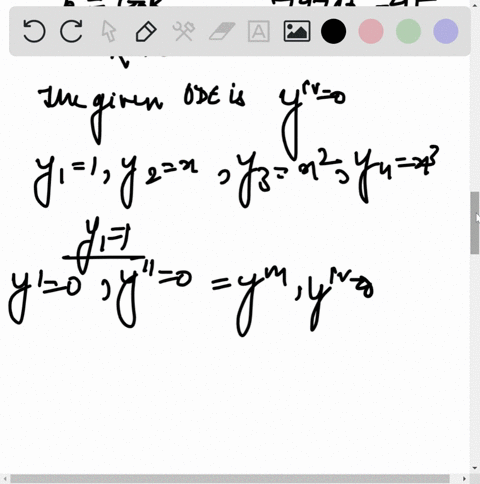 The given ODE is y^{iv}=0
y₁=1, y₂=x, y₃=x², y₄=x³
y₁=1
y'=0, y''=0 = y''', y^{iv}=0